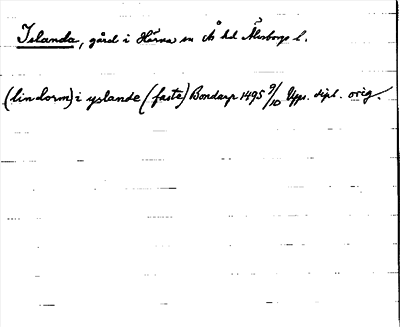 Islanda, gård i Härna sn Ås hd Älvsborgs l.
(lindorm) i yslande (faste) Bondarp 1495 9/10 Upps. dipl. orig.